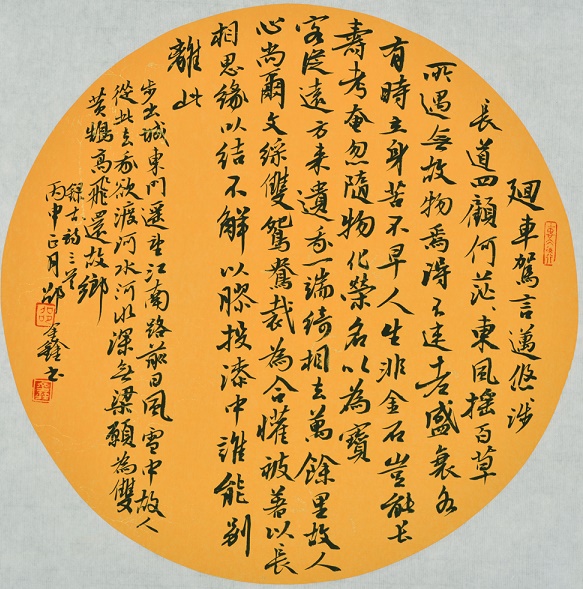 廻車駕言邁悠涉
長道四顧何茫〻東風搖百草
所遇無故物焉得不速老盛衰各
有時立身苦不早人生非金石豈能長
壽考奄忽隨物化榮名以為寶
客從遠方來遺我一端綺相去萬餘里故人
心尚爾文綵雙鴛鴦裁為合懽被著以長
相思緣以結不解以膠投漆中誰能別
離此
步出城東門遙望江南路前日風雪中故人
從此去我欲渡河水河水深無梁願為雙
黃鵠高飛還故鄉
錄古詩三首
丙申正月邵鑫書